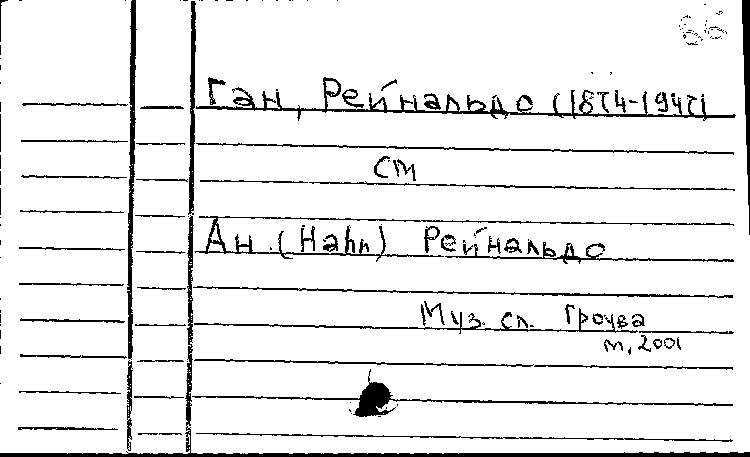 66
Ган, Рейнальдо (1874-1947)
см
Ан (Hahn) Рейнальдо
Муз. сл. Гроува
м, 2001